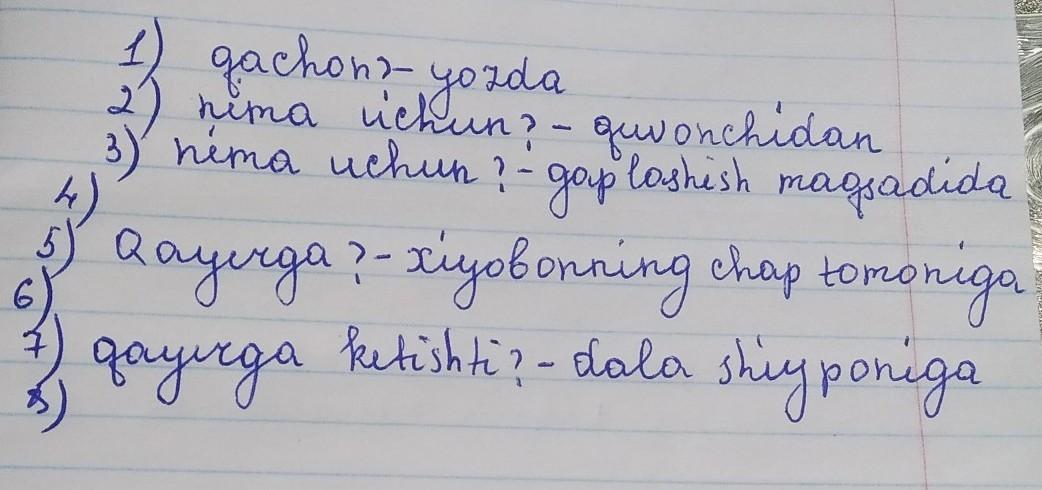 1) qachon?-yozda
2) nima uchun?-quvonchidan
3) nima uchun?-gaplashish maqsadida
4)
5) Qayerga?-xiyobonning chap tomoniga
6)
7) qayerga ketishti?-dala shiyponiga
8)